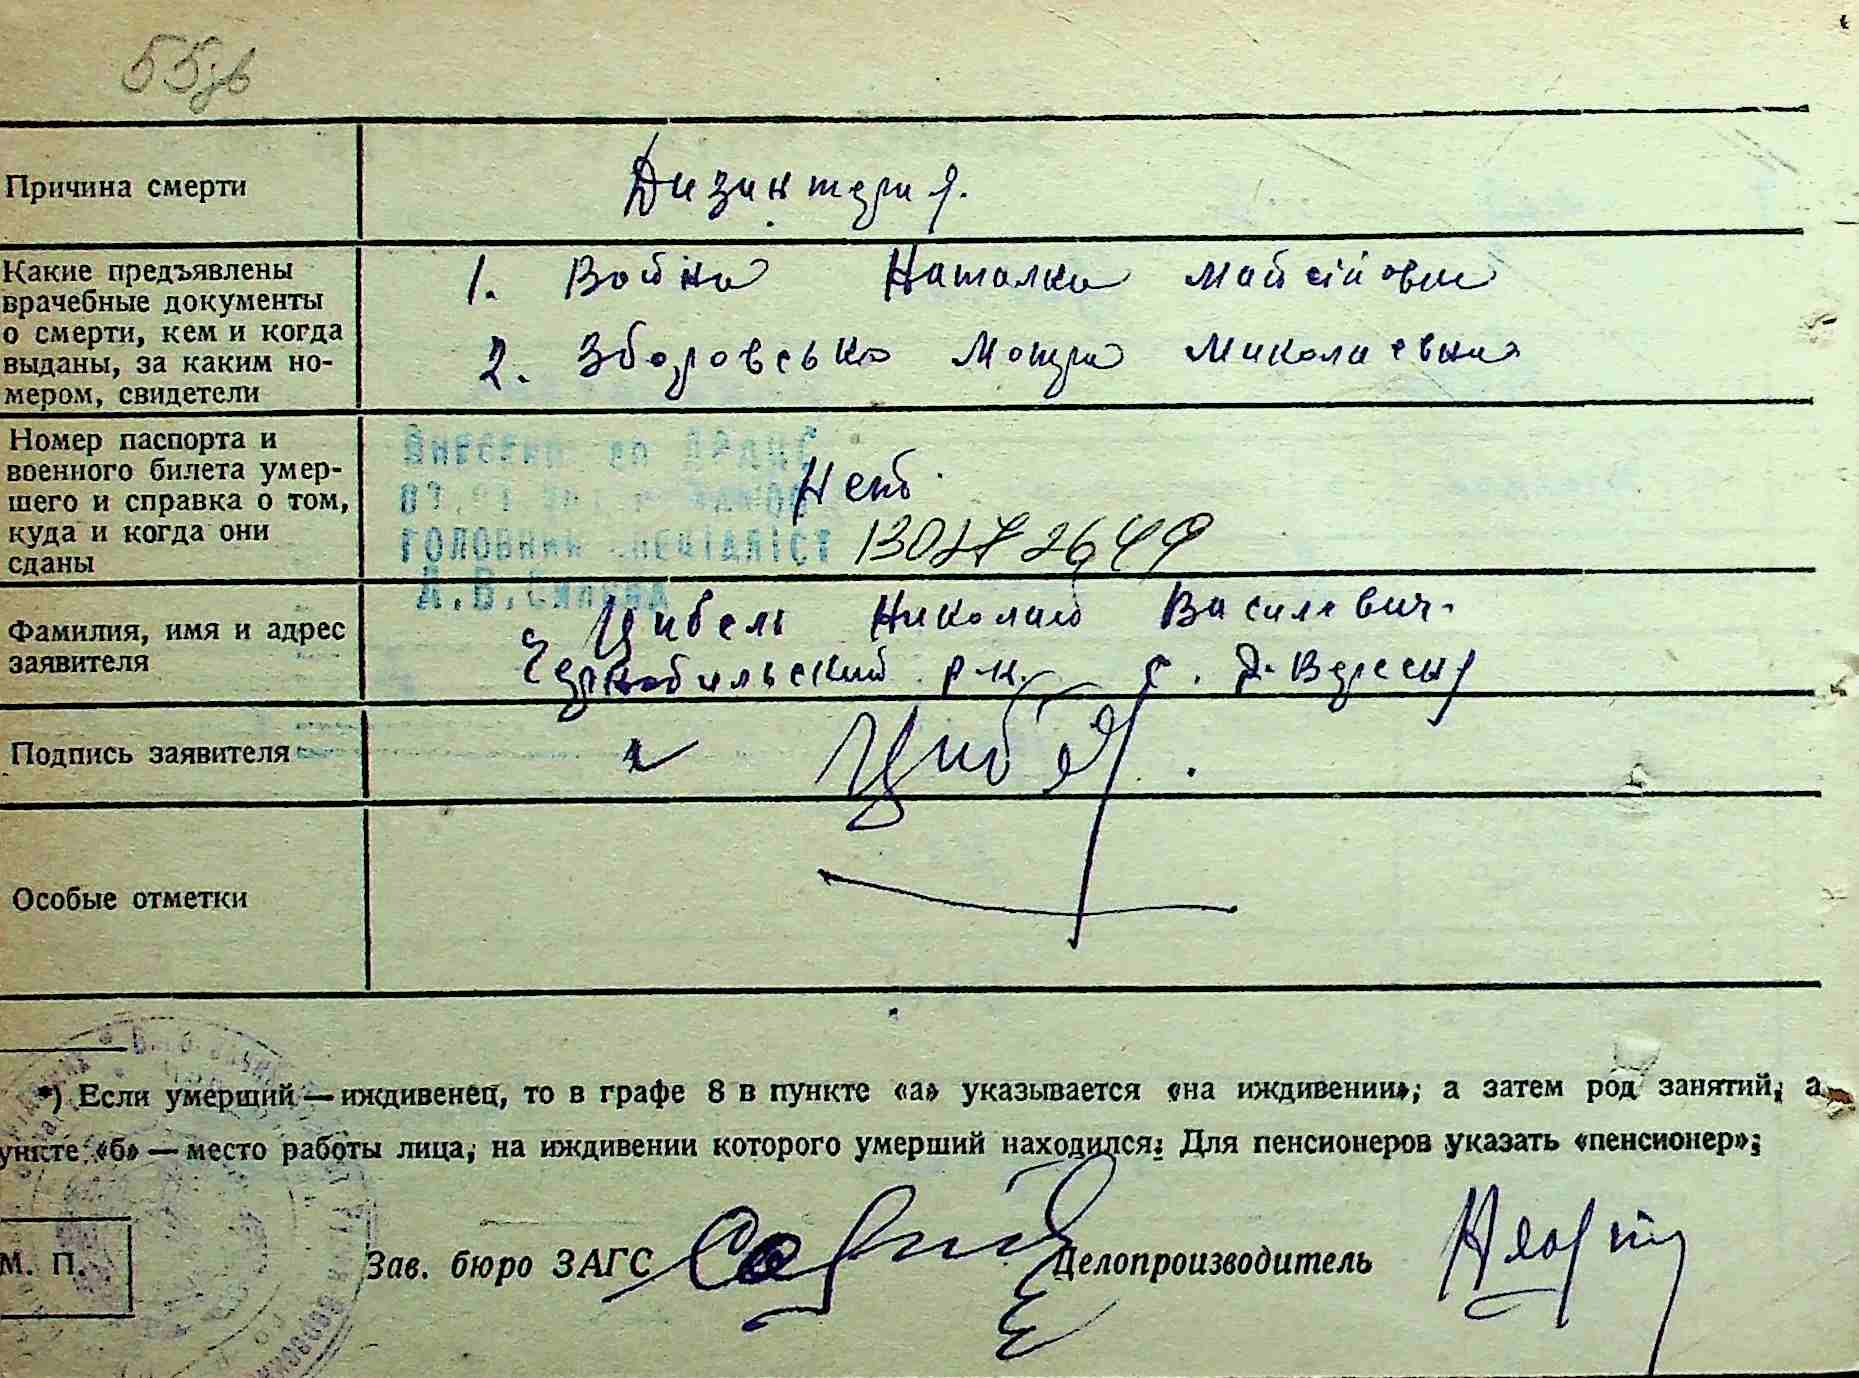 55зв
Причина смерти
Дизинтерия.
Какие предъявлены
врачебные документы
о смерти, кем и когда
выданы, за каким но-
мером, свидетели
1. Война Наталка Майсійовна
2. Зборовська Мотря Миколаевна
Номер паспорта и
военного билета умер-
шего и справка о том,
куда и когда они
сданы
Внесено до ДРАЦС
головний спеціаліст
А.В.
Нет
Фамилия, имя и адрес
заявителя
Цибель Николай Василевич.
Чернобильский р-н. с. Вересня
Подпись заявителя
Особые отметки
*) Если умерший — иждивенец, то в графе 8 в пункте «а» указывается «на иждивении»; а затем род занятий; а
ункте «б» — место работы лица, на иждивении которого умерший находился. Для пенсионеров указать «пенсионер»;
М. П.
Зав. бюро ЗАГС
Делопроизводитель